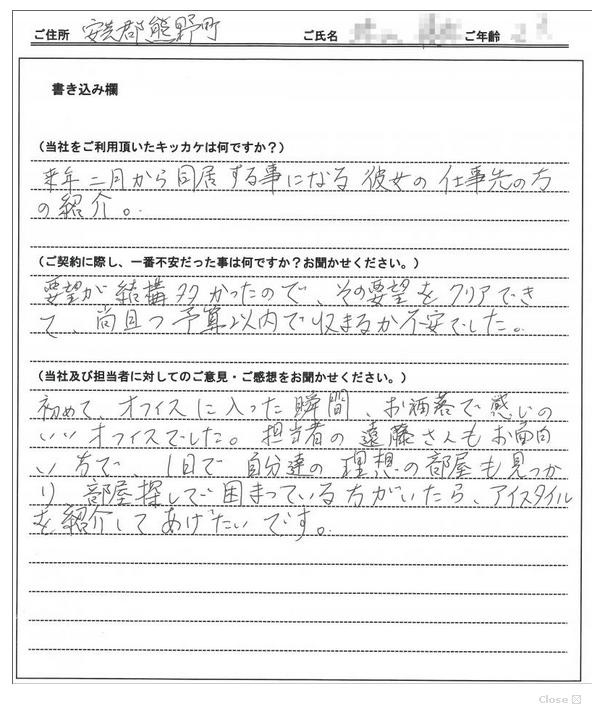 ご住所 安芸郡熊野町 ご氏名 ご年齢
書き込み欄
(当社をご利用頂いたキッカケは何ですか?)
来年二月から同居する事になる彼女の仕事先の方
の紹介。
(ご契約に際し、一番不安だった事は何ですか?お聞かせください。)
要望が結構多かったので、その要望をクリアでき
て、尚且つ予算以内で収まるか不安でした。
(当社及び担当者に対してのご意見・ご感想をお聞かせください。)
初めて、オフィスに入った瞬間、お洒落で感じの
いいオフィスでした。担当者の遠藤さんもお面白
い方で 1日で自分達の理想の部屋も見つか
り 部屋探しで困まっている方がいたら、アイスタイル
を紹介してあげたいです。
Close